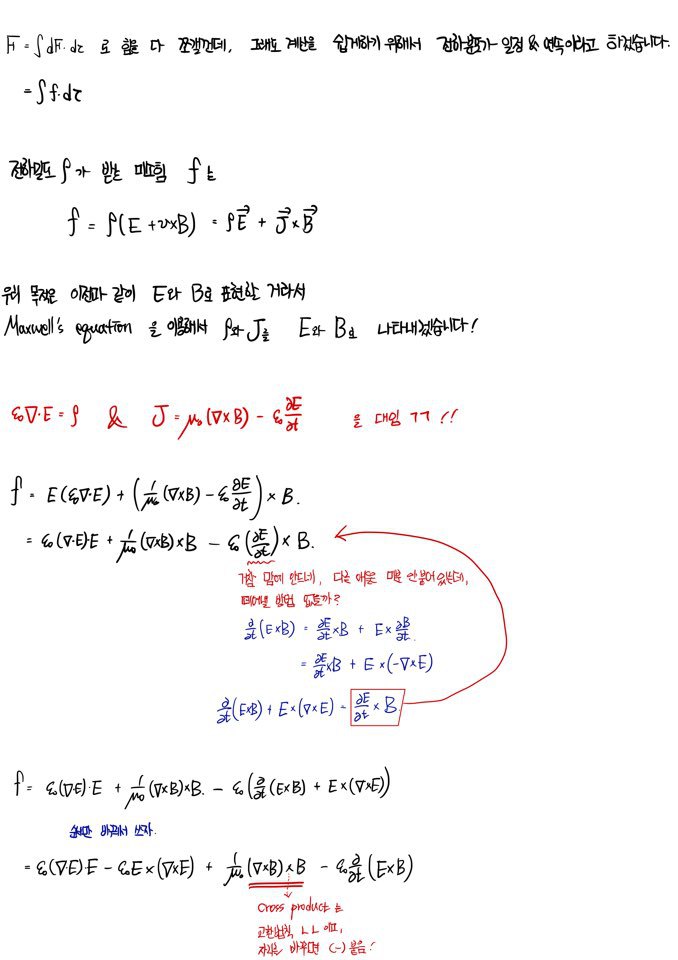 F = ∫dF·dτ 로 힘을 다 쪼갤건데, 그래도 계산을 쉽게하기 위해서 전하분포가 일정 & 연속이라고 하겠습니다.
= ∫f·dτ
전하밀도 ρ가 받는 힘 f는
f = ρ(E + v×B) = ρE⃗ + J⃗×B⃗
우리 목적은 이전과 같이 E와 B로 표현할 거라서
Maxwell's equation 을 이용해서 ρ와 J를 E와 B로 나타내겠습니다!
ε₀∇·E = ρ & J = μ₀(∇×B) - ε₀ ∂E/∂t 을 대입 ㄱㄱ!!
f = E(ε₀∇·E) + (1/μ₀(∇×B) - ε₀ ∂E/∂t) × B.
= ε₀(∇·E)·E + 1/μ₀(∇×B)×B - ε₀(∂E/∂t)×B.
맘에 안드네, 다른 애들은 미분 안붙어있는데,
떼어낼 방법 없을까?
∂/∂t(E×B) = ∂E/∂t×B + E×∂B/∂t.
= ∂E/∂t×B + E×(-∇×E)
∂/∂t(E×B) + E×(∇×E) = ∂E/∂t × B.
f = ε₀(∇·E)·E + 1/μ₀(∇×B)×B. - ε₀(∂/∂t(E×B) + E×(∇×E))
순서만 바꿔서 쓰자.
= ε₀(∇·E)·E - ε₀E×(∇×E) + 1/μ₀(∇×B)×B - ε₀∂/∂t(E×B)
Cross product는
교환법칙 ㄴㄴ 이고,
자리를 바꾸면 (-) 붙음!